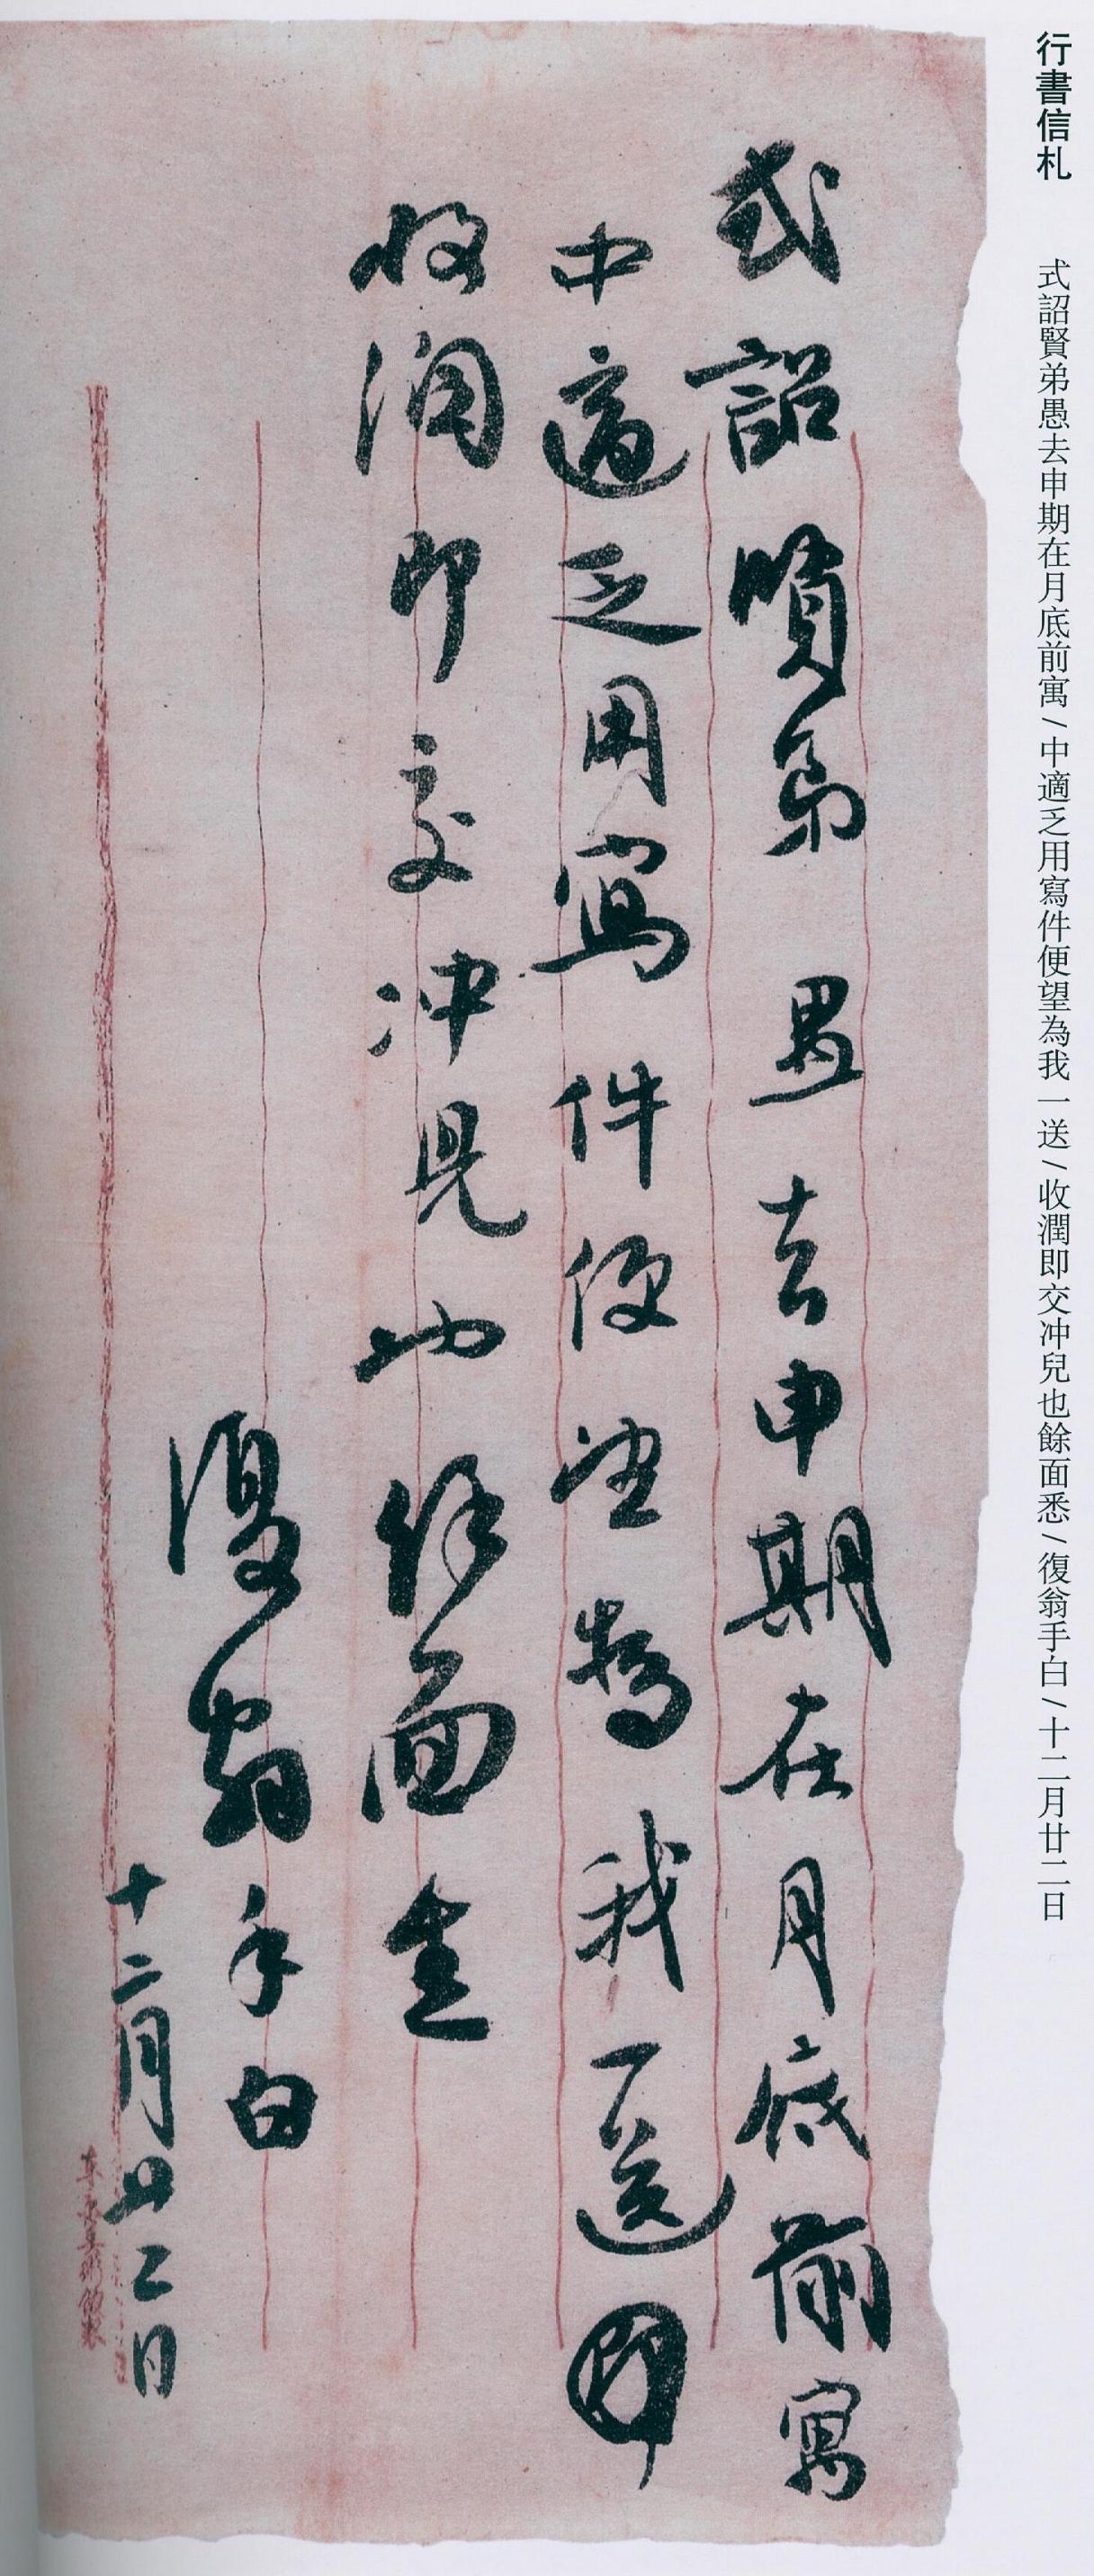 行書信札
式詔賢弟愚去申期在月底前寓/中適乏用寫件便望為我一送/收潤即交冲兒也餘面悉/復翁手白/十二月廿二日
式詔賢弟愚去申期在月底前寓
中適乏用寫件便望為我一送
收潤即交冲兒也餘面悉
復翁手白
十二月廿二日